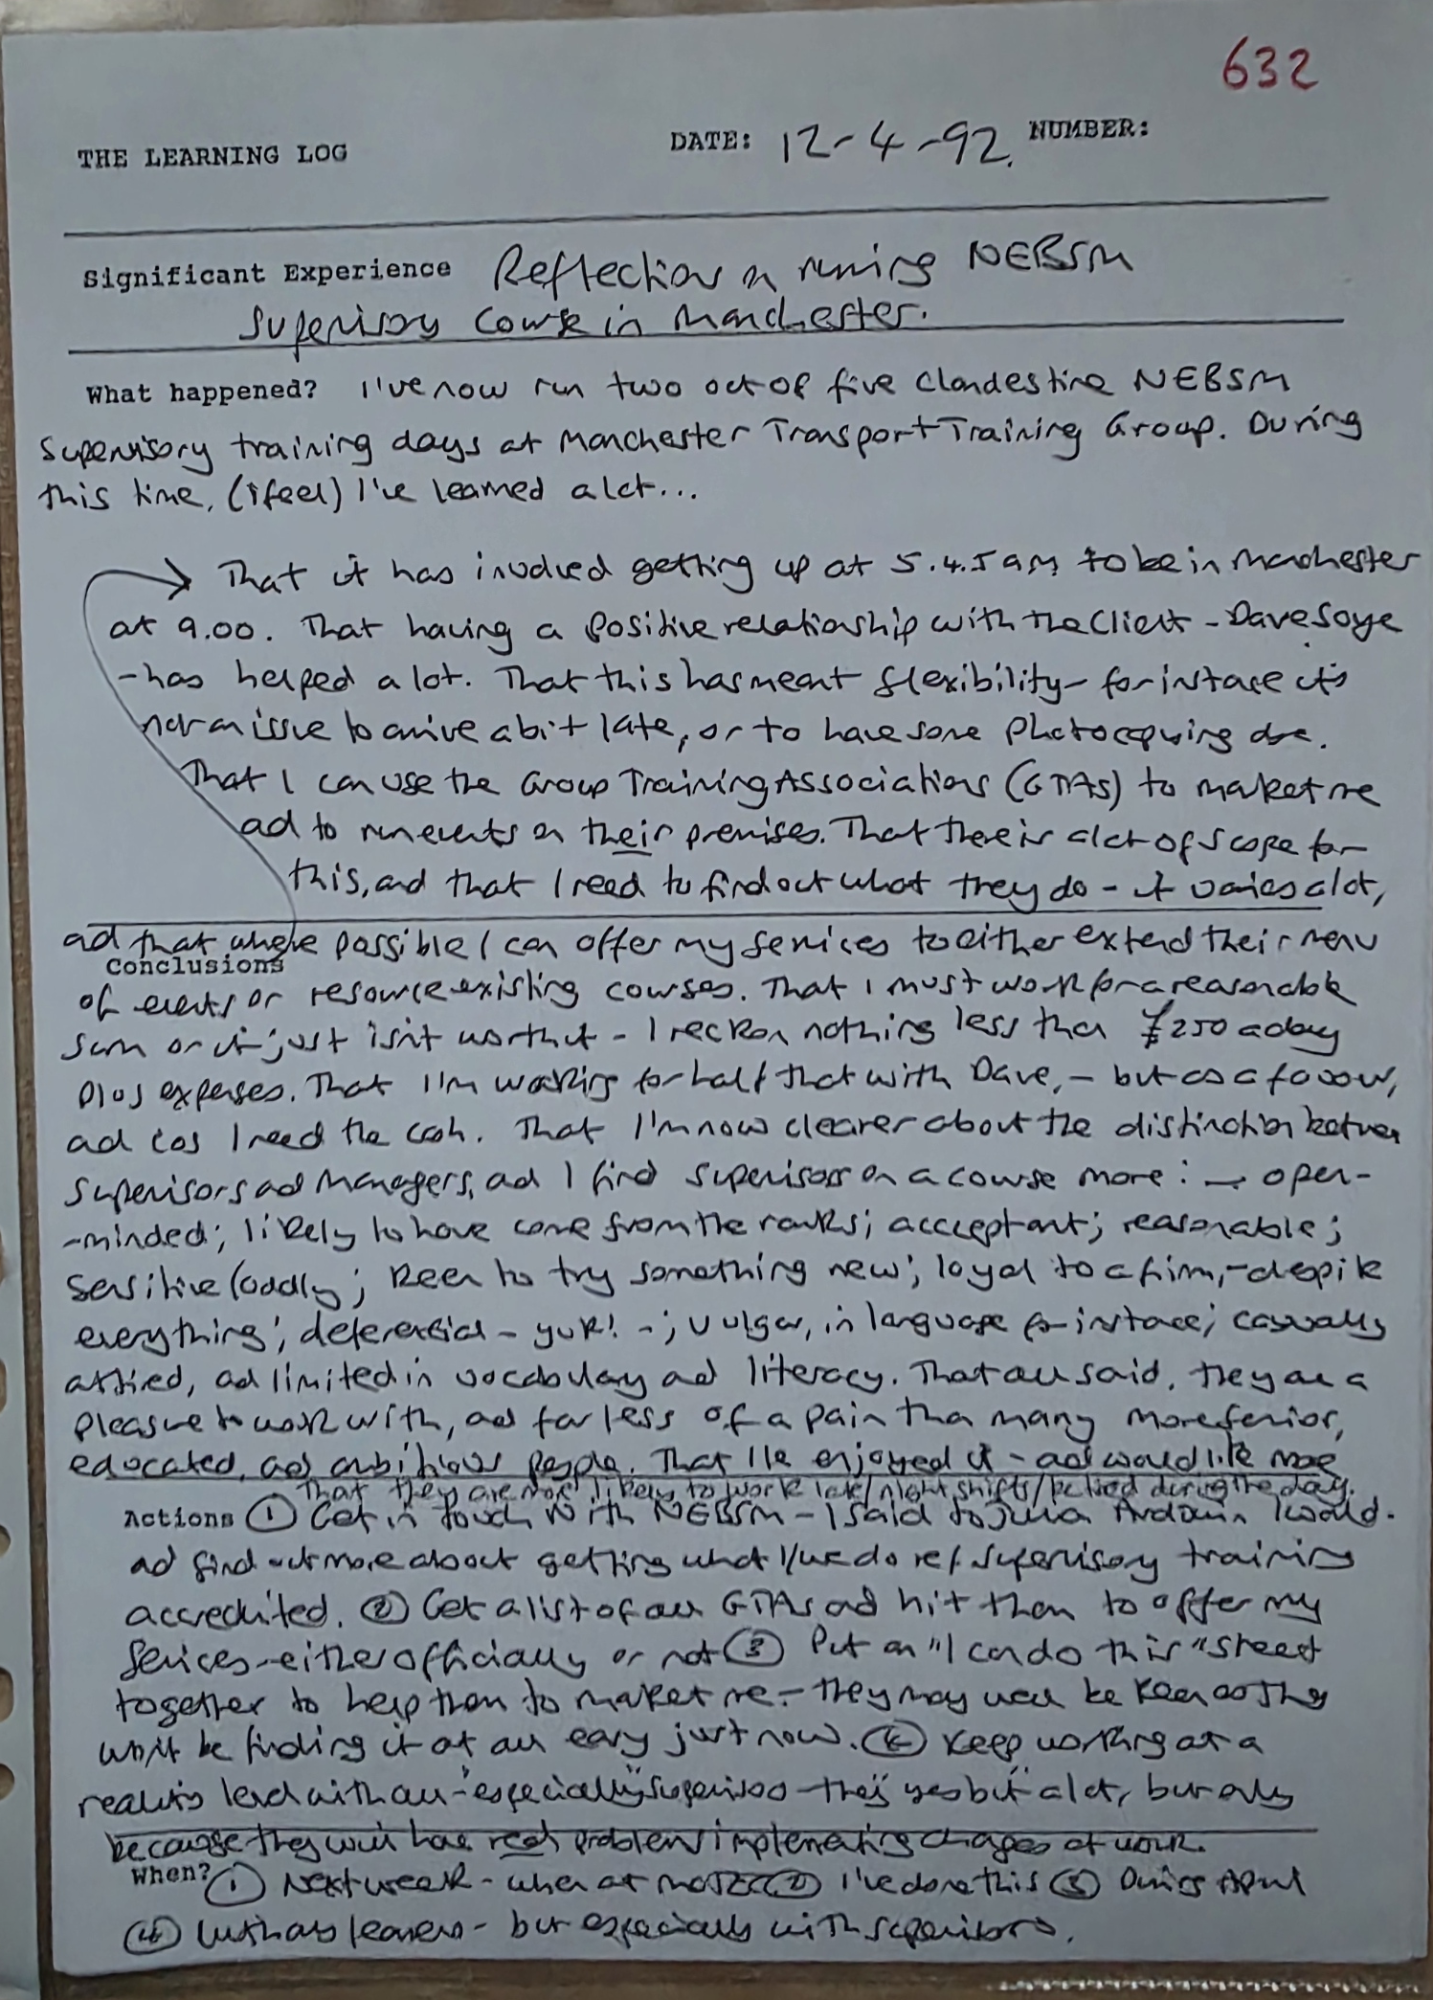 632
THE LEARNING LOG DATE: 12-4-92. NUMBER:
Significant Experience Reflections on running NEBSM
Supervisory Course in Manchester.
What happened? I've now run two out of five clandestine NEBSM
supervisory training days at Manchester Transport Training Group. During
this time, (i feel) I've learned a lot...
→ That it has involved getting up at 5.45 am to be in Manchester
at 9.00. That having a positive relationship with the Client - Dave Soye
- has helped a lot. That this has meant flexibility - for instance it's
not an issue to arrive a bit late, or to have some photocopying done.
That I can use the Group Training Associations (GTAs) to market me
and to run events on their premises. That there is a lot of scope for
this, and that I need to find out what they do - it varies a lot,
and that where possible I can offer my services to either extend their menu
Conclusions
of events or resource existing courses. That I must work for a reasonable
sum or it just isn't worth it - I reckon nothing less than £250 a day
plus expenses. That I'm working for half that with Dave, - but as a favour,
and cos I need the cash. That I'm now clearer about the distinction between
supervisors and managers, and I find supervisors on a course more: → open-
-minded; likely to have come from the ranks; acceptant; reasonable;
sensitive (oddly; keen to try something new; loyal to a firm, - despite
everything; deferential - yuk! -; vulgar, in language for instance; casually
attired, and limited in vocabulary and literacy. That all said, they are a
pleasure to work with, and far less of a pain than many more senior,
educated, and ambitious people. That I've enjoyed it - and would like more
That they are more likely to work late/night shifts/be tired during the day.
Actions ① Get in touch with NEBSM - I said to Julia I would.
and find out more about getting what I/we do ref supervisory training
accredited. ② Get a list of all GTAs and hit them to offer my
services - either officially or not ③ Put an "I can do this" sheet
together to help them to market me - they may well be keen as they
won't be finding it at all easy just now. ④ Keep working at a
realistic level with all - especially supervisors - they "yes but" a lot, but only
because they will have real problems implementing changes at work.
When? ① Next week - when at ② I've done this ③ During April
④ With all learners - but especially with supervisors.